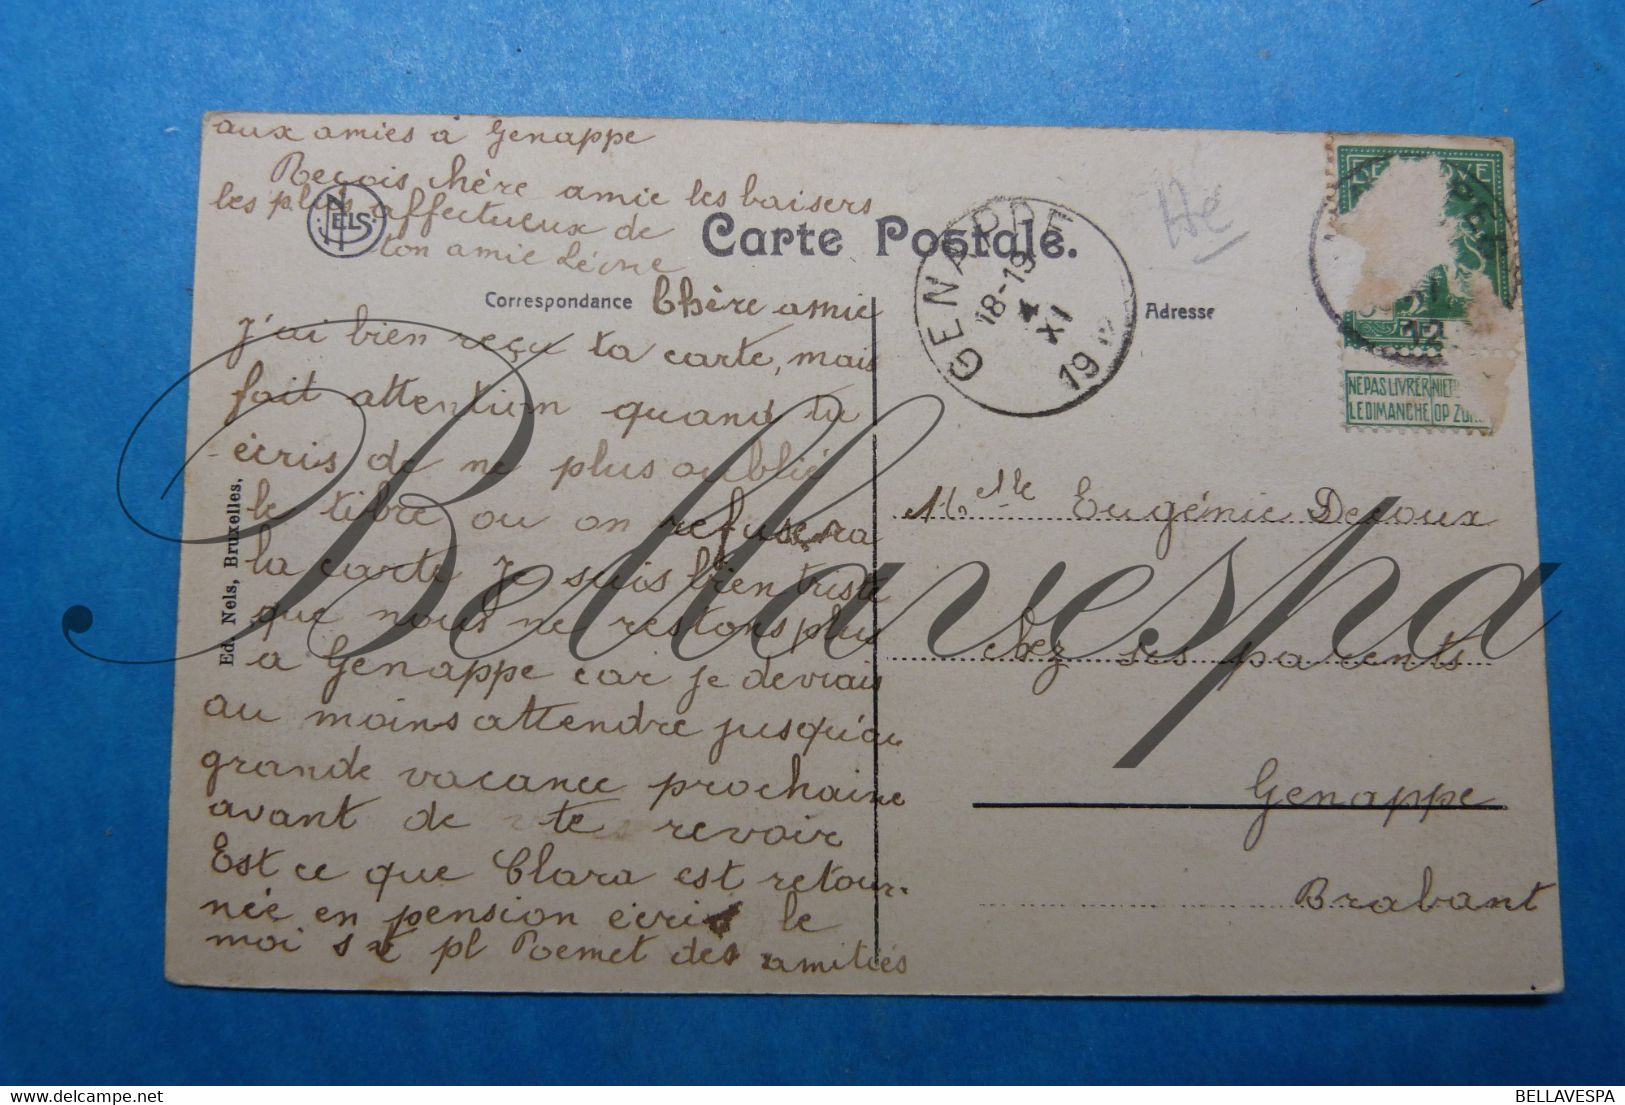 aux amies à Genappe
Reçois chère amie les baisers
les plus affectueux de
ton amie Léone
NELS
Carte Postale.
Correspondance
Adresse
Chère amie
J'ai bien reçu ta carte, mais
fait attention quand tu
écris de ne plus oublié
le tibre ou on refusera
la carte Je suis bien triste
que nous ne restons plus
a Genappe car je devrais
au moins attendre jusqu'au
grande vacance prochaine
avant de te revoir
Est ce que Clara est retour-
née en pension écris le
moi s v pl Poemet des amitiés
Ed. Nels, Bruxelles.
GENAPPE
18-19
4
XI
19
12
NE PAS LIVRER
LE DIMANCHE
OP ZON
Melle Eugénie Decoux
Chez ses parents
Genappe
Brabant
Bellavespa
BELLAVESPA